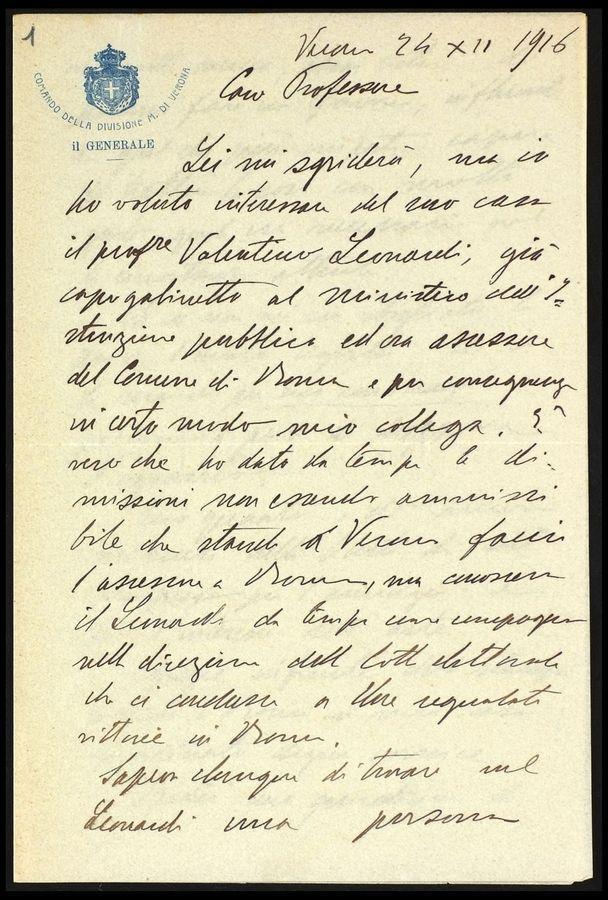 1
COMANDO DELLA DIVISIONE M. DI VERONA
il GENERALE
Verona 24 XII 1916
Caro Professore
Lei mi sgriderà, ma io
ho voluto interessare del suo caso
il profre Valentino Leonardi, già
capogabinetto al Ministero dell'I=
struzione pubblica ed ora assessore
del Comune di Roma e per conseguenza
in certo modo mio collega. È
vero che ho dato da tempo le di-
missioni non essendo ammissi
bile che stando a Verona facci
l'assessore a Roma, ma conoscevo
il Leonardi da tempo come compagno
nella direzione delle lotte elettorali
che ci condusse a due segnalate
vittorie in Roma.
Sapevo dunque di trovare nel
Leonardi una persona